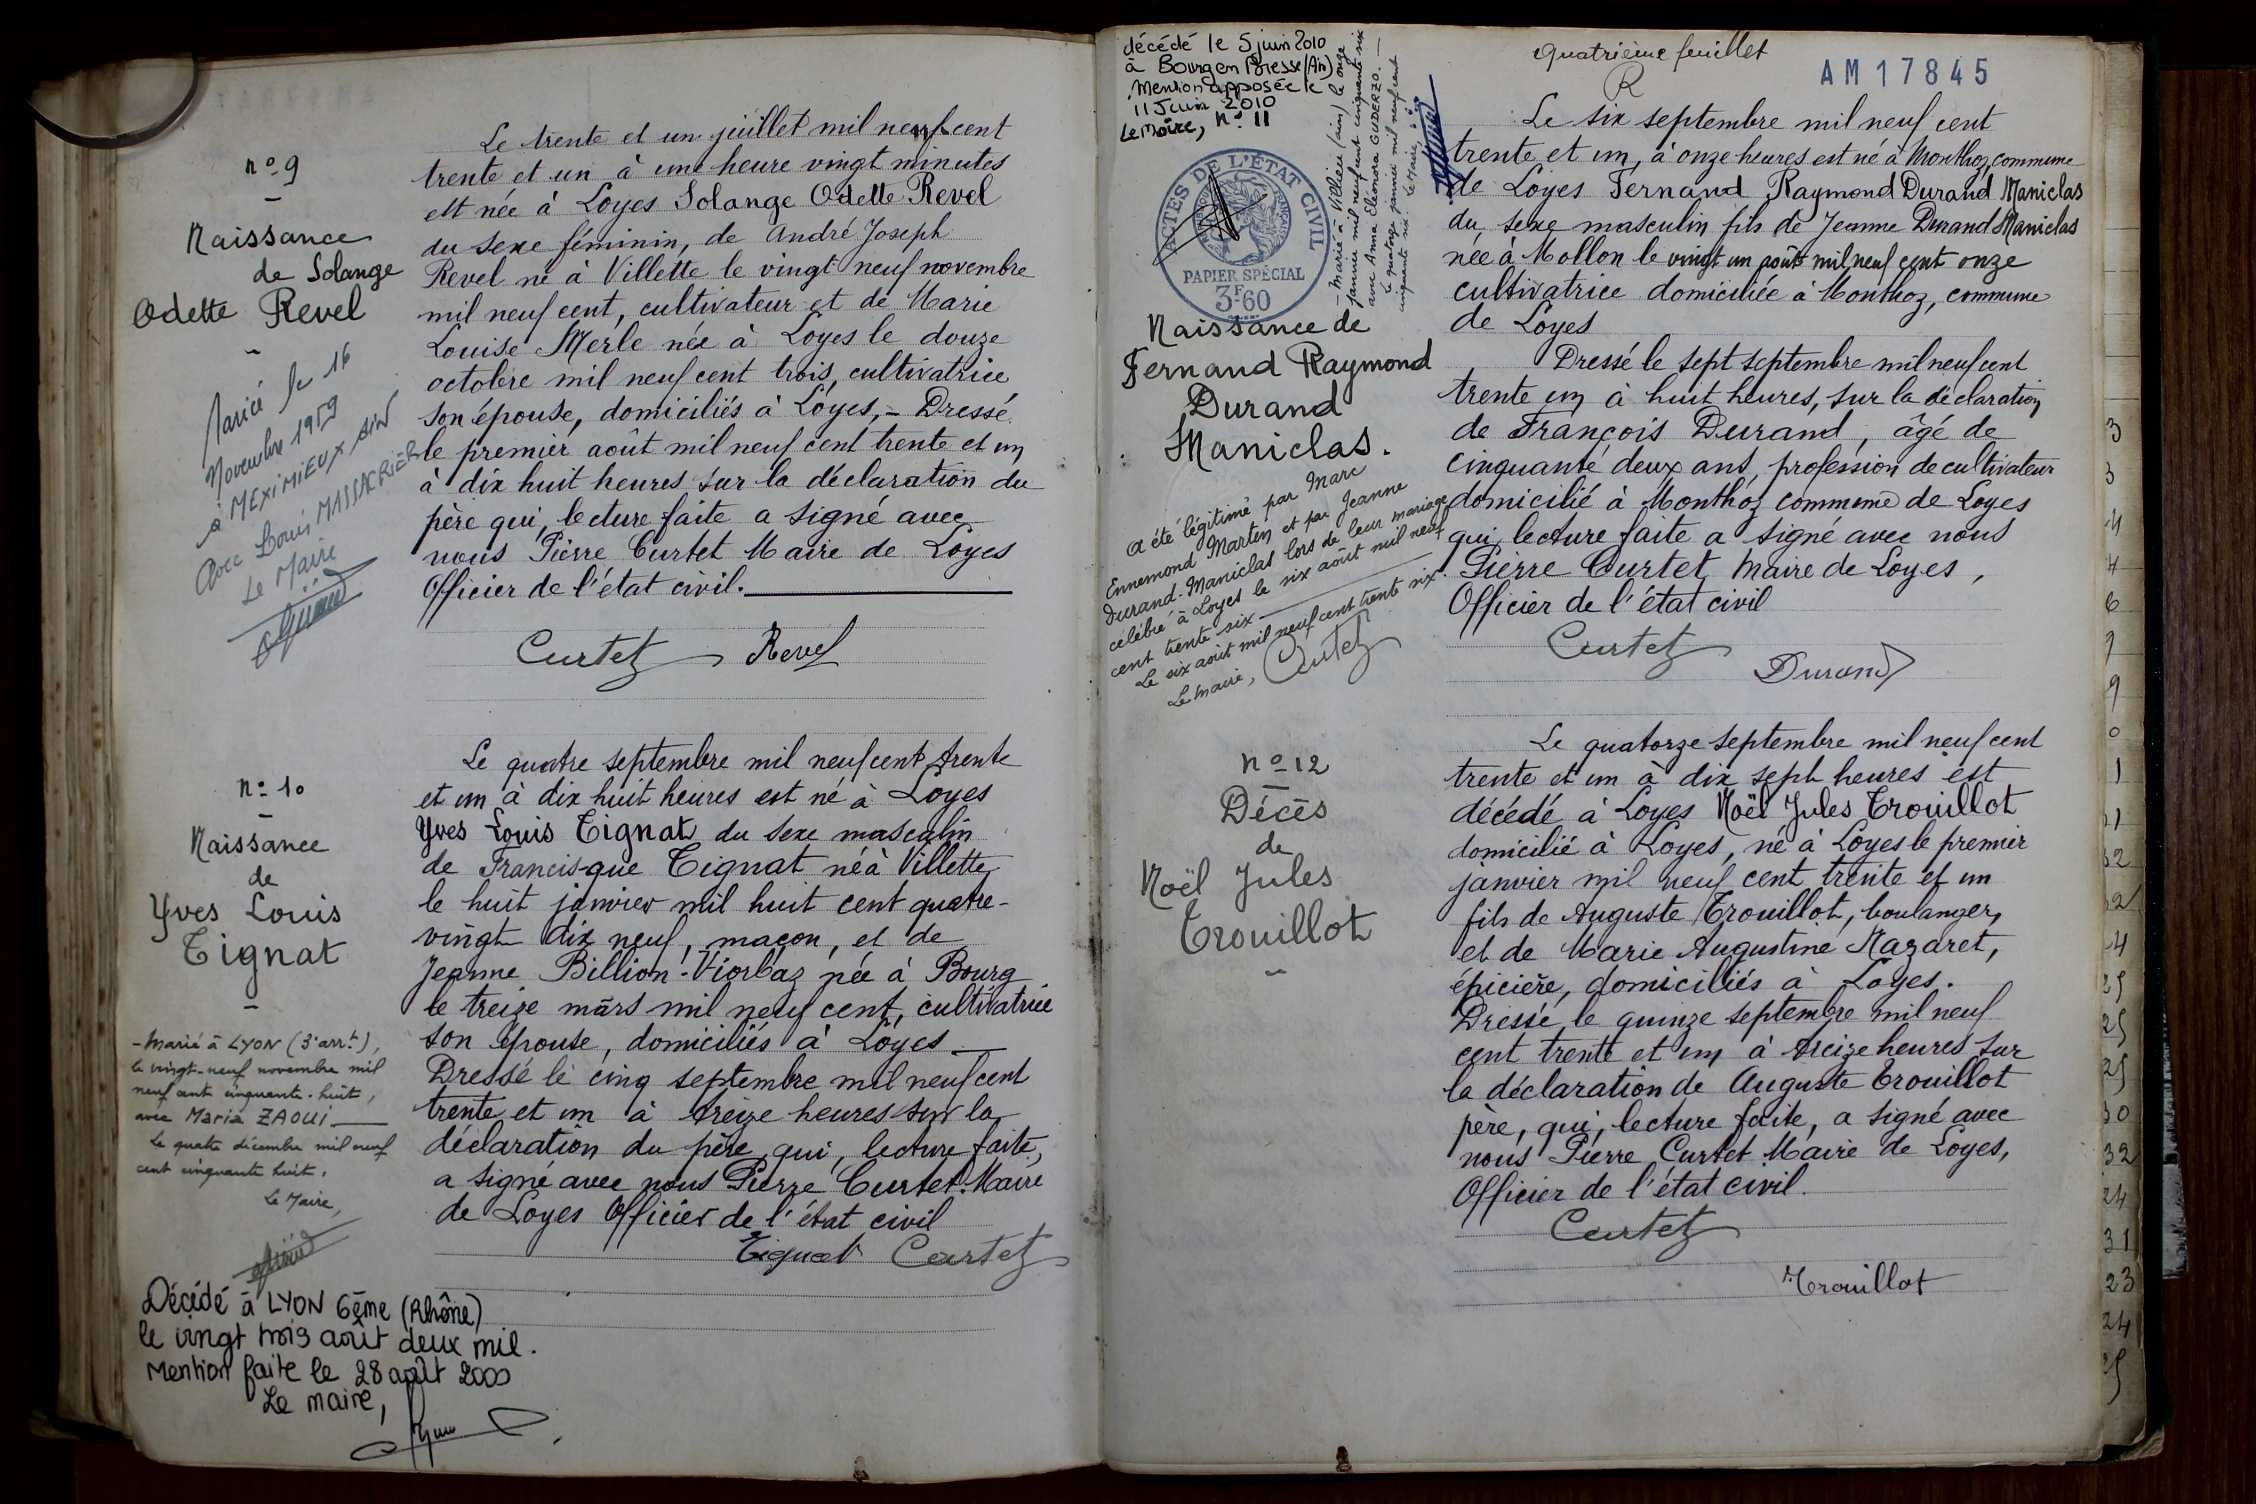 n° 9
Naissance
de Solange
Odette Revel
Marié le 16
Novembre 1959
à MEXIMIEUX AIN
Avec Louis MASSACRIER
Le Maire
Le trente et un juillet mil neuf cent
trente et un à une heure vingt minutes
est née à Loyes Solange Odette Revel
du sexe féminin, de André Joseph
Revel né à Villette le vingt neuf novembre
mil neuf cent, cultivateur et de Marie
Louise Merle née à Loyes le douze
octobre mil neuf cent trois, cultivatrice
son épouse, domiciliés à Loyes, - Dressé
le premier août mil neuf cent trente et un
à dix huit heures sur la déclaration du
père qui, lecture faite a signé avec
nous Pierre Curtet Maire de Loyes
Officier de l'état civil.
Curtet Revel
n° 10
Naissance
de
Yves Louis
Tignat
- Marié à LYON (3e arrt),
le vingt-neuf novembre mil
neuf cent cinquante-huit,
avec Maria ZAOUI
Le quatre décembre mil neuf
cent cinquante huit.
Le Maire,
Décédé à LYON 6ème (Rhône)
le vingt trois août deux mil.
Mention faite le 28 août 2000
Le maire,
Le quatre septembre mil neuf cent trente
et un à dix huit heures est né à Loyes
Yves Louis Tignat du sexe masculin
de Francisque Tignat né à Villette
le huit janvier mil huit cent quatre-
vingt dix neuf, maçon, et de
Jeanne Billion-Viorbaz née à Bourg
le treize mars mil neuf cent, cultivatrice
son épouse, domiciliés à Loyes
Dressé le cinq septembre mil neuf cent
trente et un à treize heures sur la
déclaration du père, qui, lecture faite,
a signé avec nous Pierre Curtet Maire
de Loyes Officier de l'état civil
Tignat Curtet
décédé le 5 juin 2010
à Bourg en Bresse (Ain)
Mention apposée le
11 Juin 2010
Le Maire, n° 11
- Marié à Villieu (Ain) le onze
janvier mil neuf cent cinquante six
avec Anna Eléonora GUDERZO. -
Le quatorze janvier mil neuf cent
cinquante six. Le Maire,
ACTES DE L'ÉTAT CIVIL
PAPIER SPÉCIAL
3F60
Quatrième feuillet
R
AM17845
Naissance de
Fernand Raymond
Durand
Maniclas.
A été légitimé par Marc
Ennemond Martin et par Jeanne
Durand-Maniclas lors de leur mariage
célébré à Loyes le six août mil neuf
cent trente six
Le six août mil neuf cent trente six.
Le Maire, Curtet
Le six septembre mil neuf cent
trente et un, à onze heures est né à Monthoz, commune
de Loyes Fernand Raymond Durand Maniclas
du sexe masculin fils de Jeanne Durand Maniclas
née à Mollon le vingt un août mil neuf cent onze
cultivatrice domiciliée à Monthoz, commune
de Loyes
Dressé le sept septembre mil neuf cent
trente un à huit heures, sur la déclaration
de François Durand, âgé de
cinquante deux ans, profession de cultivateur
domicilié à Monthoz commune de Loyes
qui, lecture faite a signé avec nous
Pierre Curtet, Maire de Loyes,
Officier de l'état civil
Curtet
Durand
n° 12
Décès
de
Noël Jules
Trouillot
Le quatorze septembre mil neuf cent
trente et un à dix sept heures est
décédé à Loyes Noël Jules Trouillot
domicilié à Loyes, né à Loyes le premier
janvier mil neuf cent trente et un
fils de Auguste Trouillot, boulanger,
et de Marie Augustine Nazaret,
épicière, domiciliés à Loyes.
Dressé le quinze septembre mil neuf
cent trente et un à treize heures sur
la déclaration de Auguste Trouillot
père, qui, lecture faite, a signé avec
nous Pierre Curtet Maire de Loyes,
Officier de l'état civil.
Curtet
Trouillot